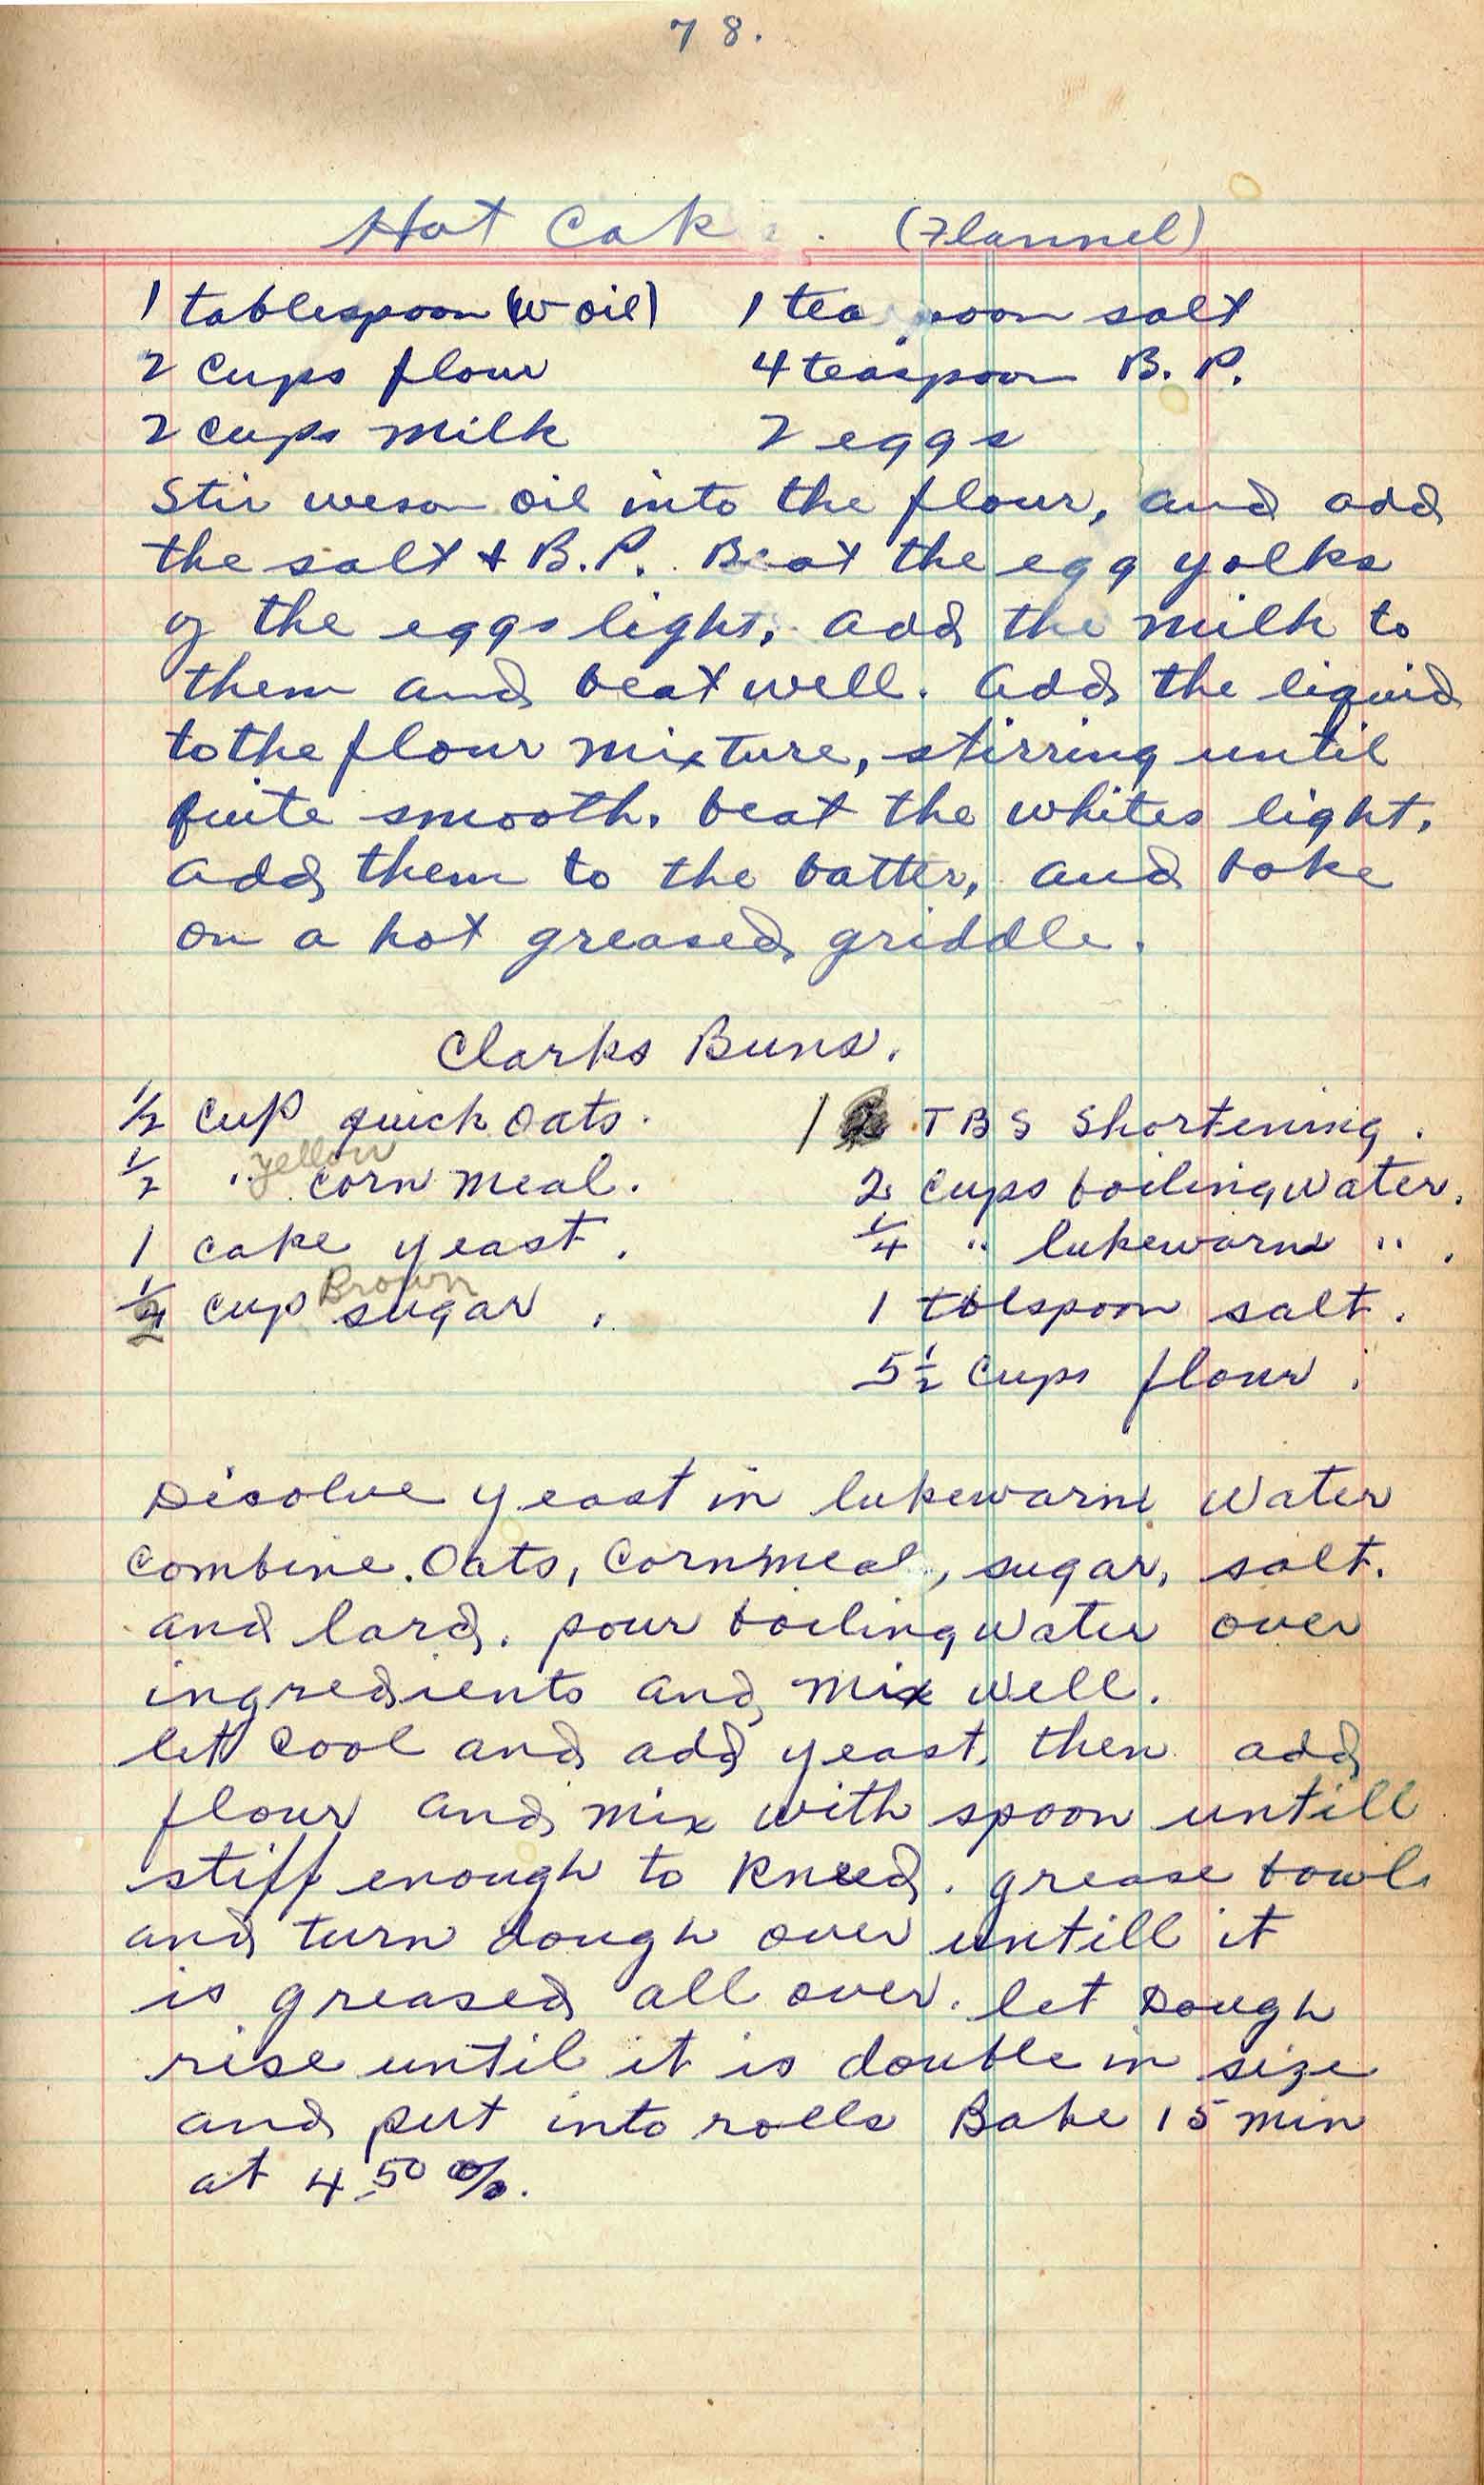 78.
Hot Cake. (Flannel)
1 tablespoon (W oil) 1 teaspoon salt
2 cups flour 4 teaspoon B. P.
2 cups milk 2 eggs
Stir weson oil into the flour, and add
the salt + B.P. Beat the egg yolks
of the eggs light, add the milk to
them and beat well. Add the liquid
to the flour mixture, stirring until
quite smooth. beat the whites light,
add them to the batter, and bake
on a hot greased griddle.
Clarks Buns.
1/2 cup quick oats. 1 TBS Shortening.
1/2 " yellow corn meal. 2 cups boiling water.
1 cake yeast. 1/4 " lukewarm " .
cup Brown sugar. 1 tblspoon salt.
5 1/2 cups flour.
Disolve yeast in lukewarm water
combine. Oats, Cornmeal, sugar, salt.
and lard. pour boiling water over
ingredients and mix well.
let cool and add yeast. then add
flour and mix with spoon untill
stiff enough to kneed. grease bowl
and turn dough over untill it
is greased all over. let Dough
rise until it is double in size
and put into rolls Bake 15 min
at 450